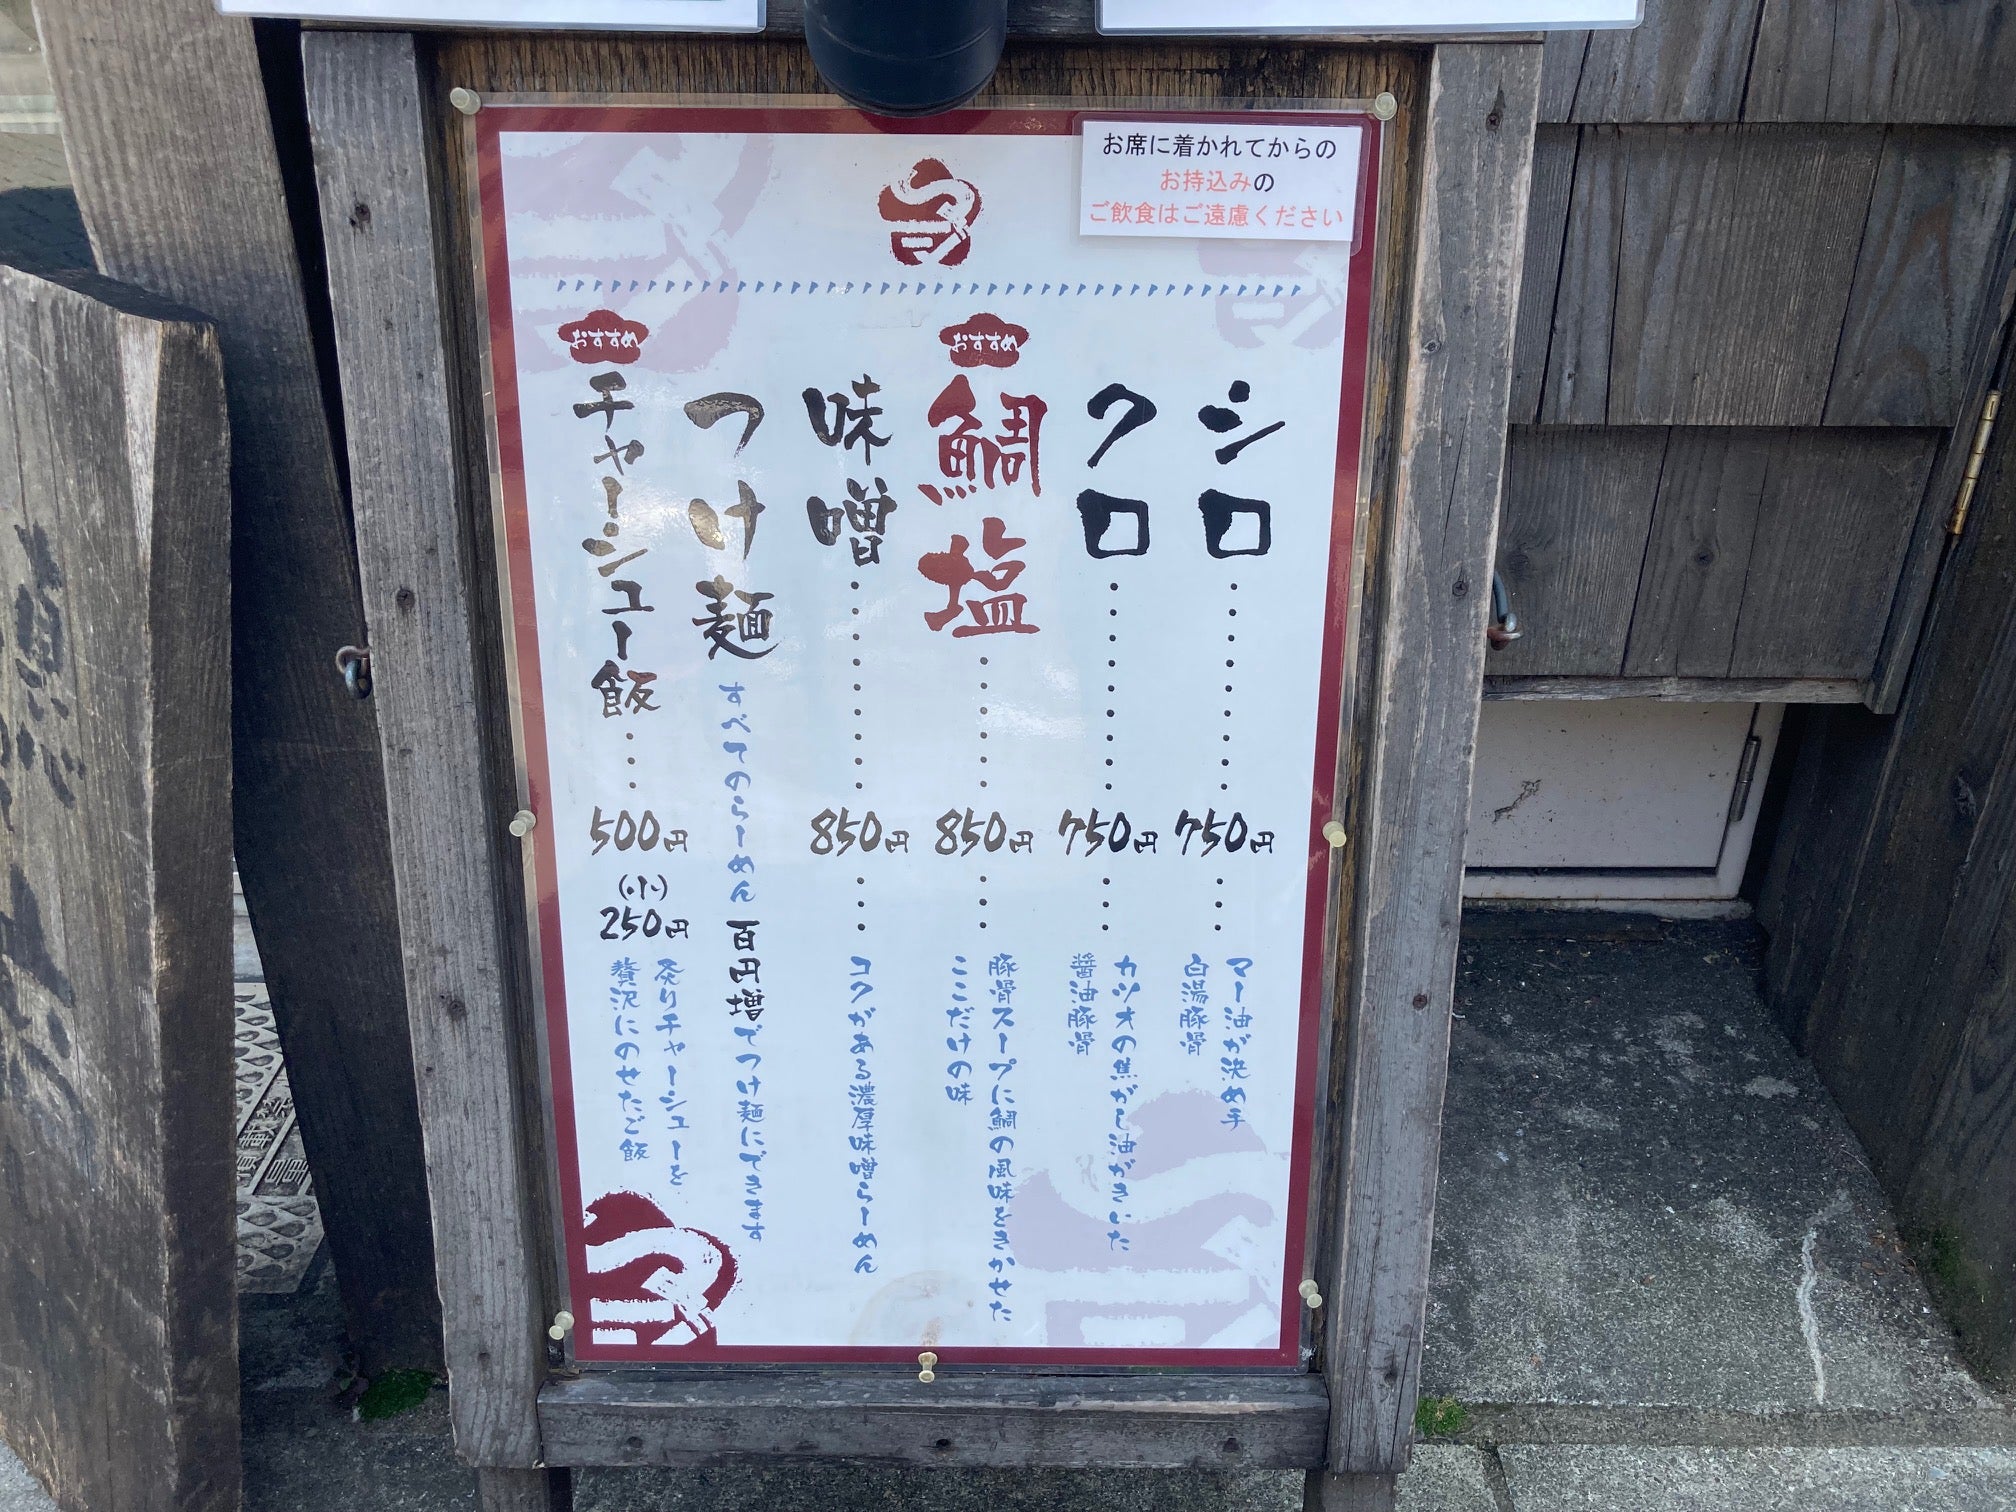 お席に着かれてからの
お持込みの
ご飲食はご遠慮ください
シロ
750円
マー油が決め手
白湯豚骨
クロ
750円
カツオの焦がし油がきいた
醤油豚骨
おすすめ
鯛塩
850円
豚骨スープに鯛の風味をきかせた
ここだけの味
味噌
850円
コクがある濃厚味噌らーめん
つけ麺
すべてのらーめん百円増でつけ麺にできます
おすすめ
チャーシュー飯
500円
(小)
250円
炙りチャーシューを
贅沢にのせたご飯